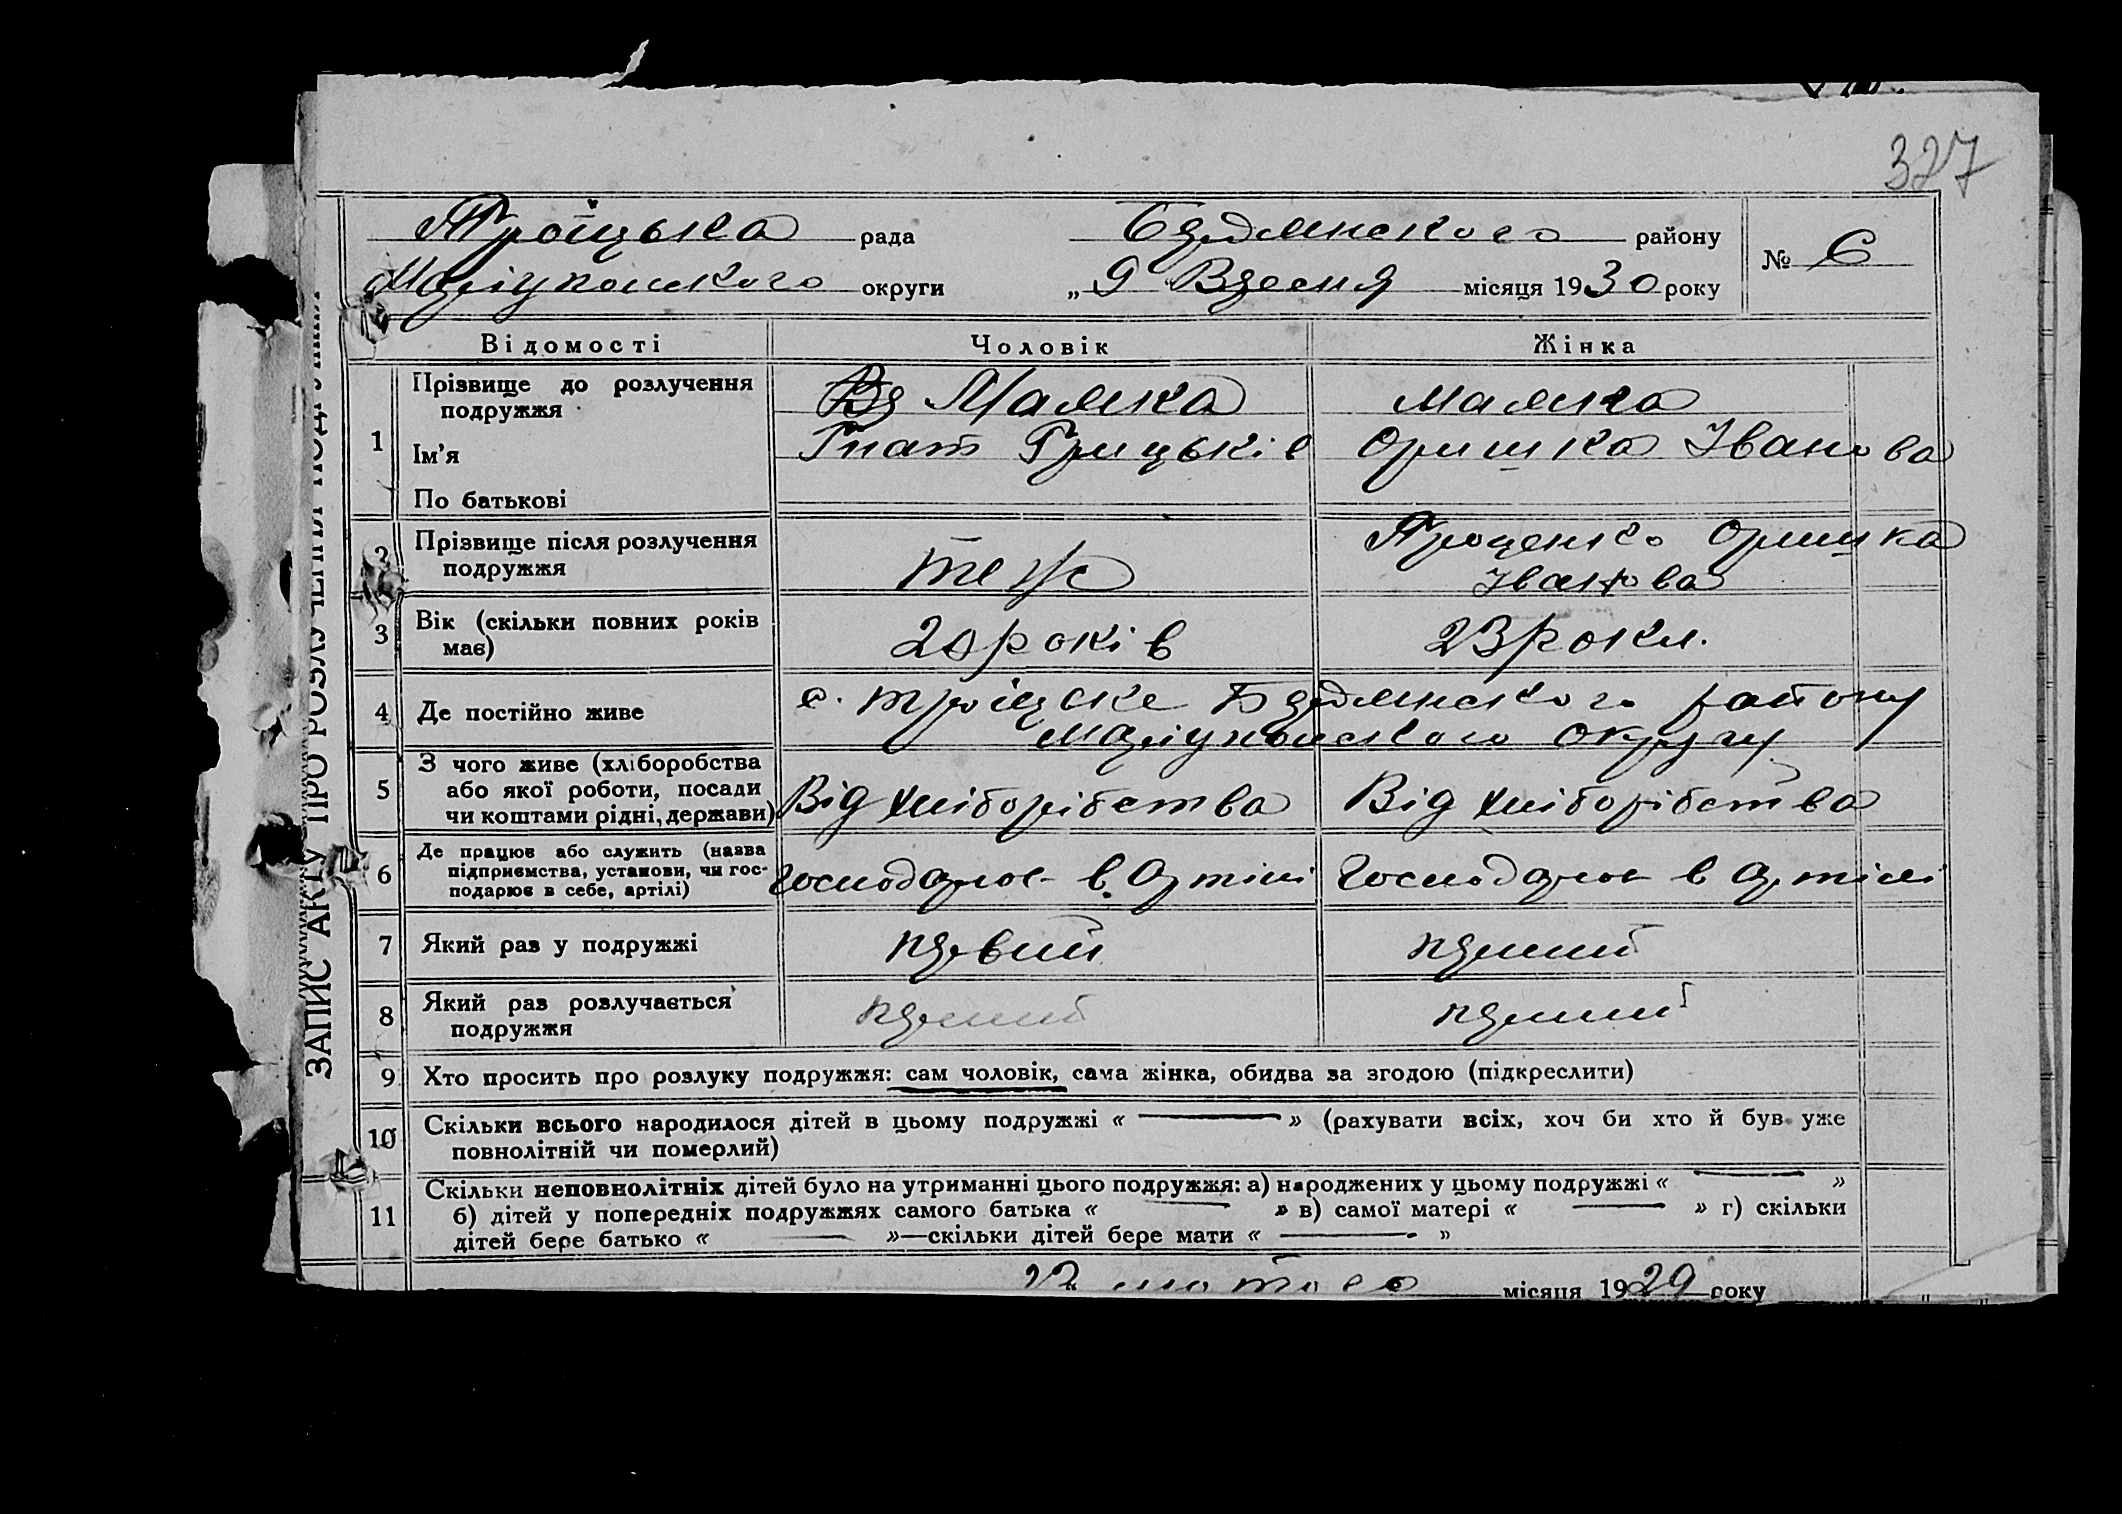 327
Троїцька рада Бердянского району № 6
Маріупольского округи „ 9 Вересня місяця 1930 року
ЗАПИС АКТУ ПРО РОЗЛУЧЕННЯ ПОДРУЖЖЯ
Відомості Чоловік Жінка
1 Прізвище до розлучення подружжя Малика Малика
Ім'я Гнат Грицьків Оришка Іванова
По батькові
2 Прізвище після розлучення подружжя теж Проценко Оришка
Іванова
3 Вік (скільки повних років має) 20 років 23 роки.
4 Де постійно живе с. Троїцьке Бердянского району
Маріупольского округу
5 З чого живе (хліборобства
або якої роботи, посади
чи коштами рідні, держави) Від хліборібства Від хліборібства
6 Де працює або служить (назва
підприємства, установи, чи гос-
подарює в себе, артілі) Господарює в Артілі Господарює в Артілі
7 Який раз у подружжі первий перший
8 Який раз розлучається
подружжя перший перший
9 Хто просить про розлуку подружжя: сам чоловік, сама жінка, обидва за згодою (підкреслити)
10 Скільки всього народилося дітей в цьому подружжі « — » (рахувати всіх, хоч би хто й був уже
повнолітній чи померлий)
11 Скільки неповнолітніх дітей було на утриманні цього подружжя: а) народжених у цьому подружжі « — »
б) дітей у попередніх подружжях самого батька « — » в) самої матері « — » г) скільки
дітей бере батько « — »—скільки дітей бере мати « — »
лютого місяця 1929 року